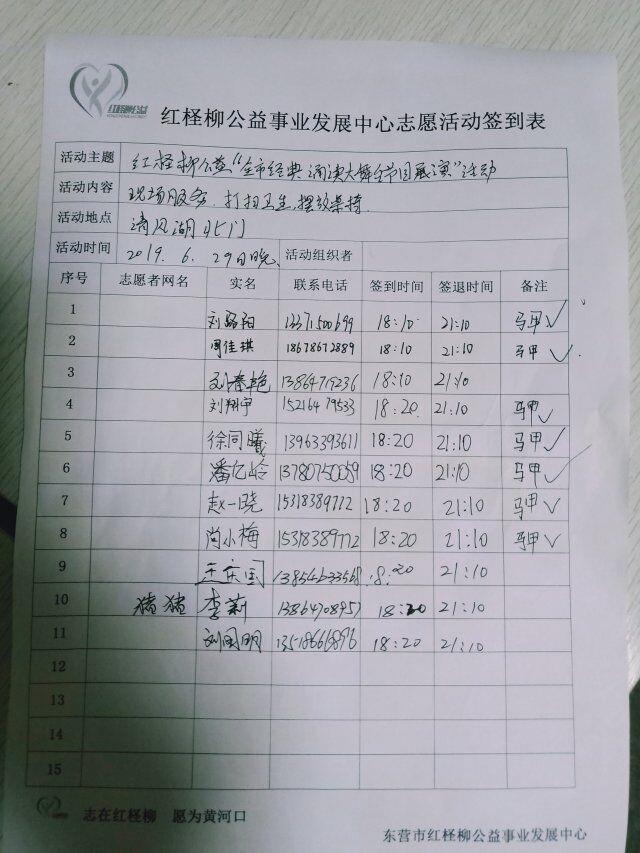 红柽柳公益
红柽柳公益事业发展中心志愿活动签到表
活动主题 红柽柳公益“全市经典诵读大舞台节目展演”活动
活动内容 现场服务、打扫卫生、摆放桌椅.
活动地点 清风湖北门
活动时间 2019. 6. 29日晚. 活动组织者
序号 志愿者网名 实名 联系电话 签到时间 签退时间 备注
1 18:10 21:10 马甲 ✓
2 周佳琪 18678672889 18:10 21:10 马甲 ✓
3 刘春艳 13864719236 18:10 21:10
4 刘翔宇 15216479533 18:20 21:10 马甲 ✓
5 徐同曦 13963393611 18:20 21:10 马甲 ✓
6 潘亿龄 13780750059 18:20 21:10 马甲 ✓
7 赵一晓 15318389772 18:20 21:10 马甲 ✓
8 尚小梅 15318389772 18:20 21:10 马甲 ✓
9 18:20 21:10
10 猪猪 李莉 18:20 21:10
11 刘国明 18:20 21:10
12
13
14
15
志在红柽柳 愿为黄河口
东营市红柽柳公益事业发展中心